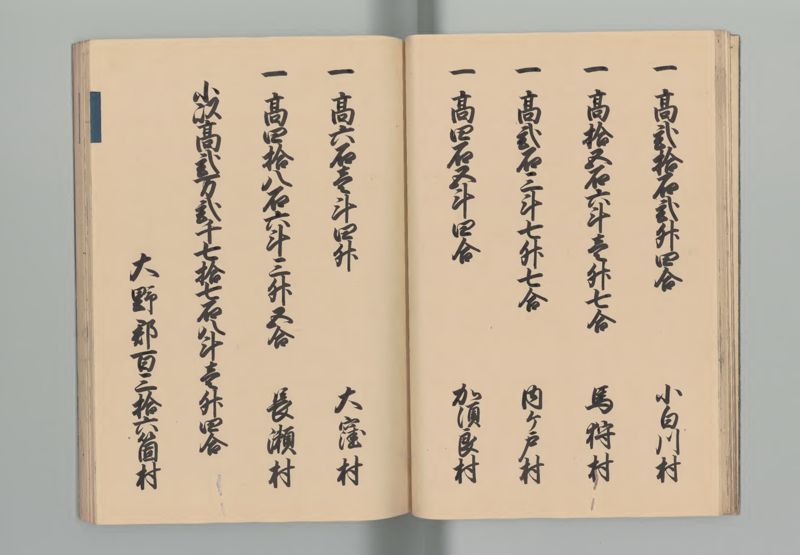 一 高弐拾石弐升四合 小白川村
一 高拾五石六斗壱升七合 馬狩村
一 高弐石三斗七升七合 内ケ戸村
一 高四石五斗四合 加須良村
一 高六石壱斗四升 大窪村
一 高四拾八石六斗三升五合 長瀬村
小以高弐万弐千七拾七石八斗壱升四合
大野郡百三拾六箇村